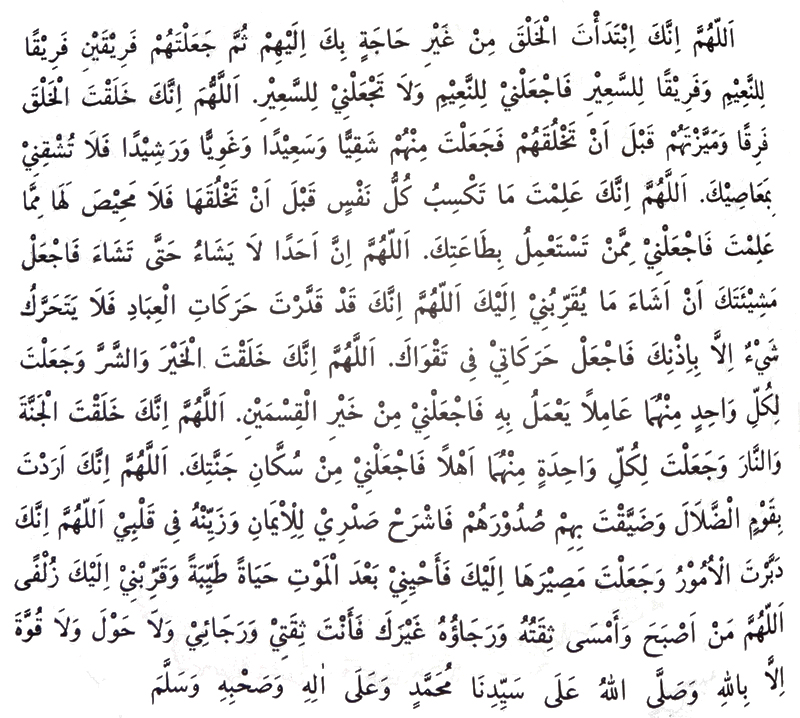 اَللّٰهُمَّ اِنَّكَ اِبْتَدَأْتَ الْخَلْقَ مِنْ غَيْرِ حَاجَةٍ بِكَ اِلَيْهِمْ ثُمَّ جَعَلْتَهُمْ فَرِيْقَيْنِ فَرِيْقًا
لِلنَّعِيْمِ وَفَرِيْقًا لِلسَّعِيْرِ فَاجْعَلْنِيْ لِلنَّعِيْمِ وَلاَ تَجْعَلْنِيْ لِلسَّعِيْرِ. اَللّٰهُمَّ اِنَّكَ خَلَقْتَ الْخَلْقَ
فَرِقًا وَمَيَّزْتَهُمْ قَبْلَ اَنْ تَخْلُقَهُمْ فَجَعَلْتَ مِنْهُمْ شَقِيًّا وَسَعِيْدًا وَغَوِيًّا وَرَشِيْدًا فَلَا تُشْقِنِيْ
بِمَعَاصِيْكَ. اَللّٰهُمَّ اِنَّكَ عَلِمْتَ مَا تَكْسِبُ كُلُّ نَفْسٍ قَبْلَ اَنْ تَخْلُقَهَا فَلَا مَحِيْصَ لَهَا مِمَّا
عَلِمْتَ فَاجْعَلْنِيْ مِمَّنْ تَسْتَعْمِلُ بِطَاعَتِكَ. اَللّٰهُمَّ اِنَّ اَحَدًا لَا يَشَاءُ حَتَّى تَشَاءَ فَاجْعَلْ
مَشِيْئَتَكَ اَنْ اَشَاءَ مَا يُقَرِّبُنِيْ اِلَيْكَ اَللّٰهُمَّ اِنَّكَ قَدْ قَدَّرْتَ حَرَكَاتِ الْعِبَادِ فَلَا يَتَحَرَّكُ
شَيْءٌ اِلاَّ بِاِذْنِكَ فَاجْعَلْ حَرَكَاتِيْ فِى تَقْوَاكَ. اَللّٰهُمَّ اِنَّكَ خَلَقْتَ الْخَيْرَ وَالشَّرَّ وَجَعَلْتَ
لِكُلِّ وَاحِدٍ مِنْهُمَا عَامِلًا يَعْمَلُ بِهِ فَاجْعَلْنِيْ مِنْ خَيْرِ الْقِسْمَيْنِ. اَللّٰهُمَّ اِنَّكَ خَلَقْتَ الْجَنَّةَ
وَالنَّارَ وَجَعَلْتَ لِكُلِّ وَاحِدَةٍ مِنْهُمَا اَهْلاً فَاجْعَلْنِيْ مِنْ سُكَّانِ جَنَّتِكَ. اَللّٰهُمَّ اِنَّكَ اَرَدْتَ
بِقَوْمٍ الْضَّلَالَ وَضَيَّقْتَ بِهِمْ صُدُوْرَهُمْ فَاشْرَحْ صَدْرِيْ لِلْاِيْمَانِ وَزَيِّنْهُ فِى قَلْبِيْ اَللّٰهُمَّ اِنَّكَ
دَبَّرْتَ الْاُمُوْرُ وَجَعَلْتَ مَصِيْرَهَا اِلَيْكَ فَأَحْيِنِيْ بَعْدَ الْمَوْتِ حَيَاةً طَيِّبَةً وَقَرِّبْنِيْ اِلَيْكَ زُلْفَى
اَللّٰهُمَّ مَنْ اَصْبَحَ وَأَمْسَى ثِقَتُهُ وَرَجَاؤُهُ غَيْرَكَ فَأَنْتَ ثِقَتِيْ وَرَجَائِيْ وَلَا حَوْلَ وَلَا قُوَّةَ
اِلاَّ بِاللهِ وَصَلَّى اللهُ عَلَى سَيِّدِنَا مُحَمَّدٍ وَعَلَى اٰلِهِ وَصَحْبِهِ وَسَلَّمَ